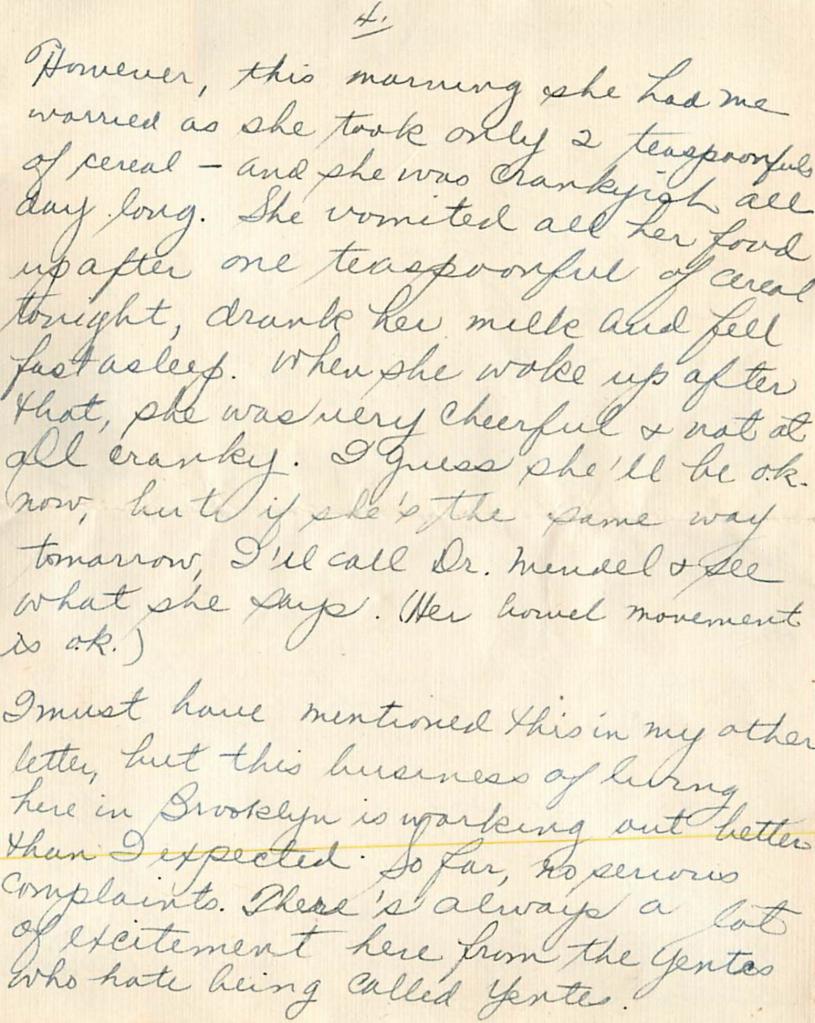 4.
However, this morning she had me
worried as she took only 2 teaspoonfuls
of cereal – and she was crankyish all
day long. She vomited all her food
up after one teaspoonful of cereal
tonight, drank her milk and fell
fast asleep. When she woke up after
that, she was very cheerful & not at
all cranky. I guess she'll be o.k.
now, but if she's the same way
tomorrow, I'll call Dr. Mendel & see
what she says. (Her bowel movement
is o.k.)
I must have mentioned this in my other
letter, but this business of living
here in Brooklyn is working out better
than I expected. So far, no serious
complaints. There's always a lot
of excitement here from the Yentes
who hate being called Yentes.